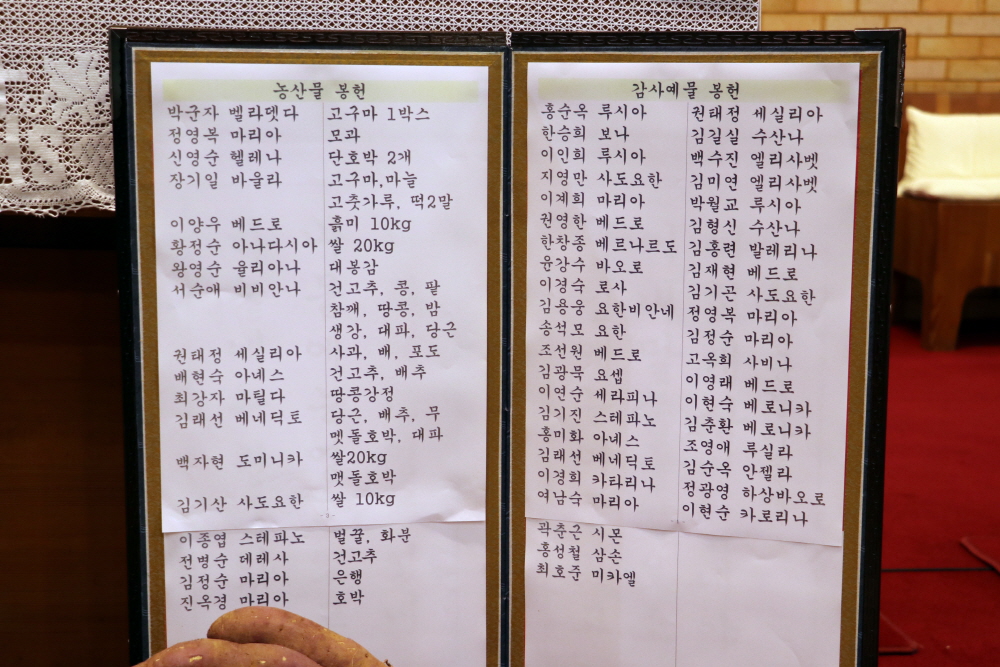 농산물 봉헌
박군자 벨라뎃다 고구마 1박스
정영복 마리아 모과
신영순 헬레나 단호박 2개
장기일 바울라 고구마,마늘
고춧가루, 떡2말
이양우 베드로 흙미 10kg
황정순 아나다시아 쌀 20kg
왕영순 율리아나 대봉감
서순애 비비안나 건고추, 콩, 팔
참깨, 땅콩, 밤
생강, 대파, 당근
권태정 세실리아 사과, 배, 포도
배현숙 아네스 건고추, 배추
최강자 마틸다 땅콩강정
김래선 베네딕토 당근, 배추, 무
멧돌호박, 대파
백자현 도미니카 쌀20kg
맷돌호박
김기산 사도요한 쌀 10kg
이종엽 스테파노 벌꿀, 화분
전병순 데레사 건고추
김정순 마리아 은행
진옥경 마리아 호박
감사예물 봉헌
홍순옥 루시아
한승희 보나
이인희 루시아
지영만 사도요한
이계희 마리아
권영한 베드로
한창종 베르나르도
윤강수 바오로
이경숙 로사
김용웅 요한비안네
송석모 요한
조선원 베드로
김광묵 요셉
이연순 세라피나
김기진 스테파노
홍미화 아녜스
김래선 베네딕토
이경희 카타리나
여남숙 마리아
곽춘근 시몬
홍성철 삼손
최호준 미카엘
권태정 세실리아
김길실 수산나
백수진 엘리사벳
김미연 엘리사벳
박월교 루시아
김형신 수산나
김홍련 발레리나
김재현 베드로
김기곤 사도요한
정영복 마리아
김정순 마리아
고옥희 사비나
이영래 베드로
이현숙 베로니카
김춘환 베로니카
조영애 루실라
김순옥 안젤라
정광영 하상바오로
이현순 카로리나